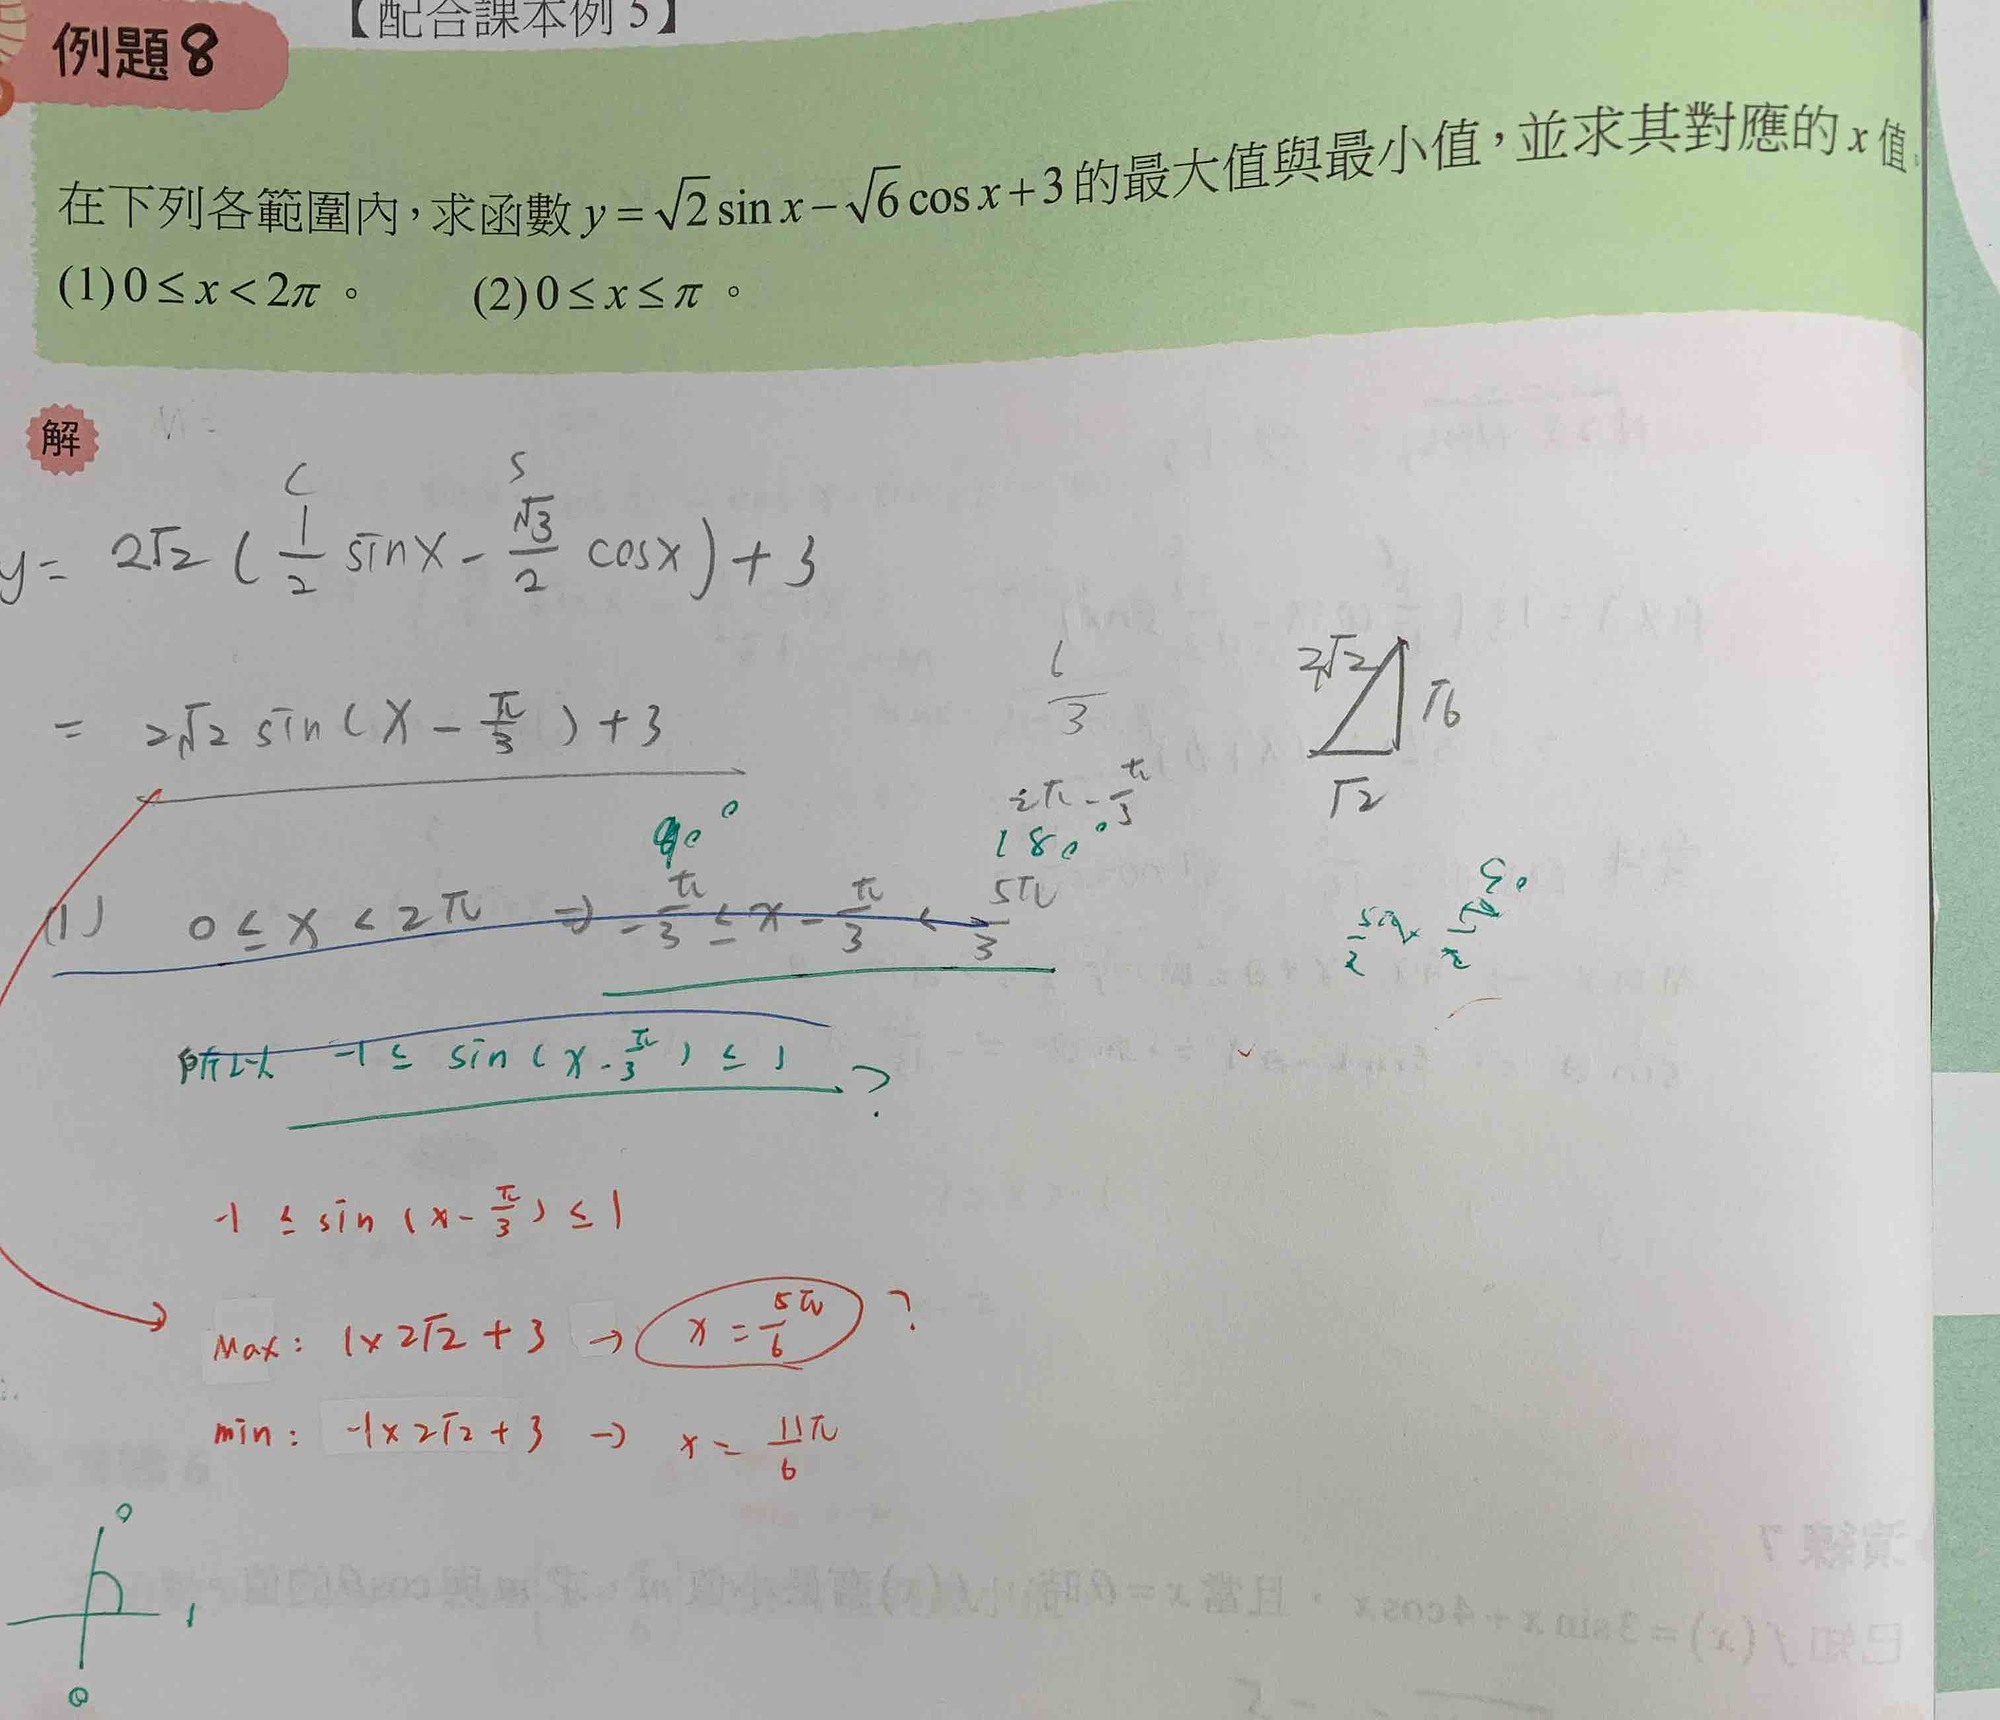 【配合課本例 5】
例題8
在下列各範圍內，求函數 y = √2 sin x − √6 cos x + 3 的最大值與最小值，並求其對應的 x 值。
(1) 0 ≤ x < 2π 。 (2) 0 ≤ x ≤ π 。
解
C S
y = 2√2 ( 1/2 sin x − √3/2 cos x ) + 3
= 2√2 sin ( x − π/3 ) + 3
1/3
2√2 √6
√2
2π − π/3
90° 180°
(1) 0 ≤ x < 2π ⇒ −π/3 ≤ x − π/3 < 5π/3
所以 −1 ≤ sin ( x − π/3 ) ≤ 1 ?
−1 ≤ sin ( x − π/3 ) ≤ 1
Max : 1 × 2√2 + 3 → x = 5π/6 ?
min : −1 × 2√2 + 3 → x = 11π/6
0
1
0